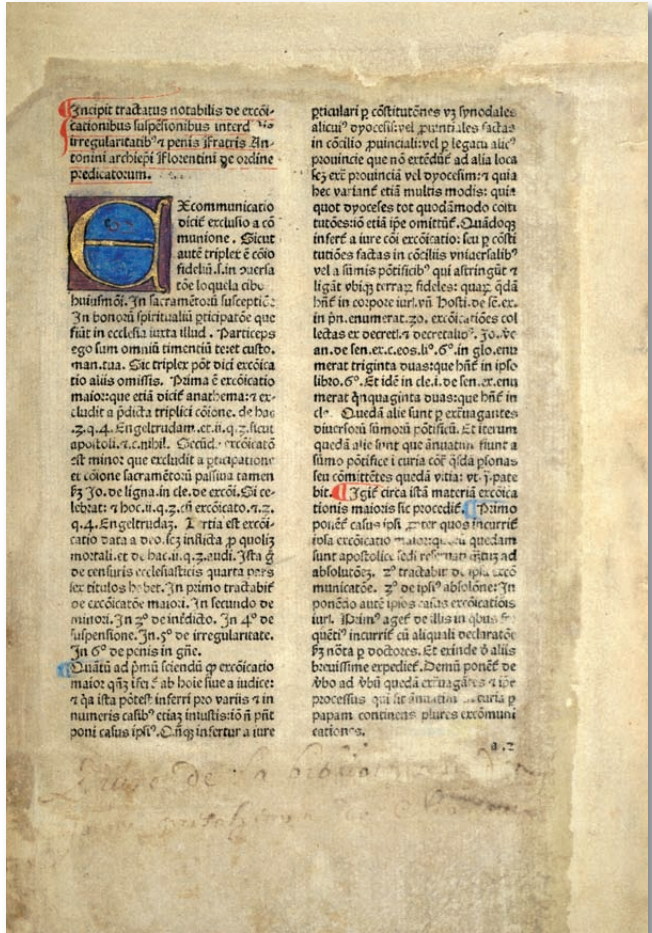 Incipit tractatus notabilis de excōi-
cationibus suspēsionibus interd
irregularitatibꝰ ⁊ penis Fratris An-
tonini archiep̄i Florentini de ordine
predicatorum.
EXcommunicatio
dicit᷑ exclusio a cō
munione. Sicut
autē triplex ē cōio
fideliū.s.in ꝯuersa
tōe loquela cibo
huiusmōi. In sacramentorū susceptiōe
In bonorū spiritualiū ꝑticipatōe que
fiūt in ecclesia iuxta illud. Particeps
ego sum omniū timentiū te:et custo.
man.tua. Sic triplex pōt dici excōica
tio aliis omissis. Prima ē excōicatio
maior:que etiā dicit᷑ anathema:⁊ ex-
cludit a p̄dicta triplici cōione. de hac
.3.q.4. Engeltrudam.et.ii.q.3.sicut
apostoli.⁊.c.nihil. Secūda excōicatō
est minor que excludit a ꝑticipatione
et cōione sacramentorū passiua tamen
ẜꝫ Jo.de ligna.in cle.de excōi. Si ce-
lebrat: ⁊ hoc.ii.q.3.cū excōicato.⁊.3.
q.4. Engeltrudaꝫ. Tertia est excōi-
catio data a deo.scꝫ inflicta ꝑ quodlibꝫ
mortali.et de hac.ii.q.3.audi. Ista g̊
de censuris ecclesiasticis quarta pars
sex titulos habet. In primo tractabit᷑
de excōicatōe maiori. In secundo de
minori. In 3º de īterdicto. In 4º de
suspensione. In.5º de irregularitate.
In 6º de penis in gn̄e.
Quātū ad pͥmū sciendū ꝙ excōicatio
maior qn̄qꝫ īfert᷑ ab hoīe siue a iudice:
⁊ q̄a ista pōtest inferri pro variis ⁊ in
numeris casibꝰ etiaꝫ iniustis:iō nō pn̄t
poni casus ipsiꝰ. Qn̄qꝫ infertur a iure
ꝑticulari ꝑ cōstitutōnes vꝫ synodales
alicuiꝰ dyocesis:vel ꝓuintiales factas
in cōcilio ꝓuinciali:vel ꝑ legatū alicꝰ
prouincie que nō extēdūt᷑ ad alia loca
scꝫ ext̄ prouinciā vel dyocesim:⁊ quia
hec variant᷑ etiā multis modis: quia
quot dyoceses tot quodāmodo cōsti
tutōes:iō etiā ip̄e omittūt᷑. Quādoqꝫ
infert᷑ a iure cōi excōicatio: seu ꝑ cōsti
tutiōes factas in cōciliis vniuersalibꝰ
vel a sūmis pōtificibꝰ qui astringūt ⁊
ligāt vbiqꝫ terraꝝ fideles: quaꝝ q̄dā
hn̄t᷑ in corpore iuri.vn̄ Hosti.de sē.ex.
in ṗn.enumerat.30. excōicatiōes col
lectas ex decreti.⁊ decretalioꝰ. Jo.
an.de sen.ex.c.eos.liº.6º.in glo.enu
merat triginta duas:que hn̄t᷑ in ipso
libro.6º. Et idē in cle.i.de sen.ex.enu
merat q̄nquaginta duas:que hn̄t᷑ in
cle. Quedā alie sunt ꝑ ext̄uagantes
diuersorū sūmorū pōtificū. Et iterum
quedā alie sunt que ānuatim fiunt a
sūmo pōtifice i curia cōt̄ q̄sdā ꝑsonas
seu cōmittētes quedā vitia: vt.ī.pate
bit. Igit᷑ circa istā materiā excōica
tionis maioris sic procedit᷑. Primo
ponēt᷑ casus ipsi ꝓpter quos incurrit᷑
ipsa excōicatio maior:quorū quedam
sunt apostolice sedi reseruati quātuꝫ ad
absolutōeꝫ. 2º tractabit᷑ de ipsa excō
municatōe. 3º de ipsiꝰ absolōne: In
ponēdo autē ipsos casus excōicatiōis
iuri. Primꝰ aget᷑ de illis in qbus fre
quētiꝰ incurrit᷑ cū aliquali declaratōe
ẜꝫ nōta ꝑ doctores. Et exinde ꝟ aliis
breuissime expediet᷑. Demū ponēt᷑ de
ꝟbo ad ꝟbū quedā ext̄uagātes ⁊ īde
processus qui fit annuatim curia ꝑ
papam continens plures excōmuni
cationes.
a.2
Livre de la bibliotheque